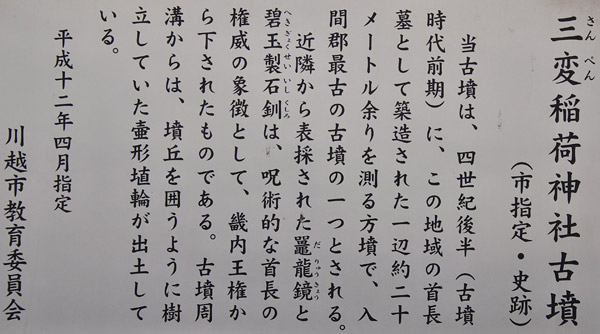 三変稲荷神社古墳
さんぺん
（市指定・史跡）
当古墳は、四世紀後半（古墳
時代前期）に、この地域の首長
墓として築造された一辺約二十
メートル余りを測る方墳で、入
間郡最古の古墳の一つとされる。
近隣から表採された鼉龍鏡と
だりゅうきょう
碧玉製石釧は、呪術的な首長の
へきぎょくせいいしくしろ
権威の象徴として、畿内王権か
ら下されたものである。古墳周
溝からは、墳丘を囲うように樹
立していた壷形埴輪が出土して
いる。
平成十二年四月指定
川越市教育委員会